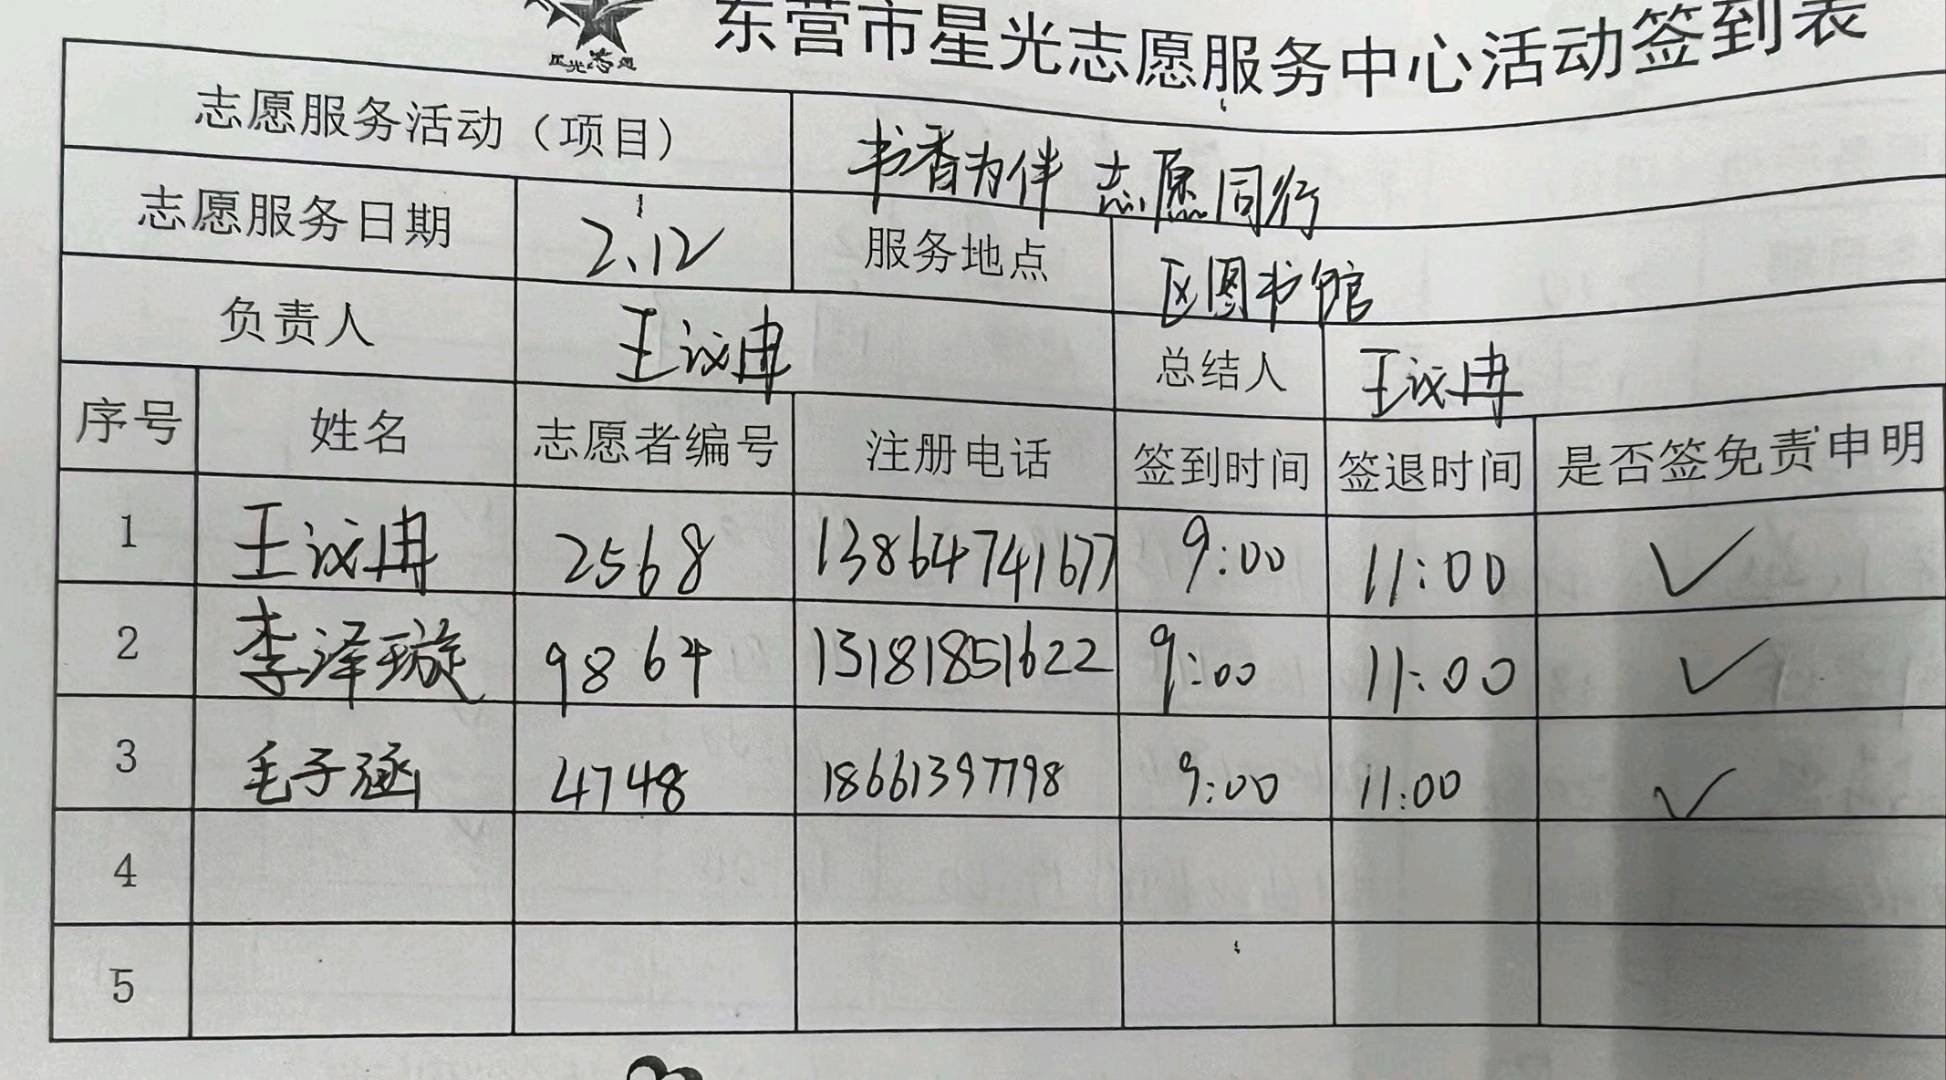 东营市星光志愿服务中心活动签到表
星光志愿
志愿服务活动（项目） 书香为伴 志愿同行
志愿服务日期 2.12 服务地点 区图书馆
负责人 王议冉 总结人 王议冉
序号 姓名 志愿者编号 注册电话 签到时间 签退时间 是否签免责申明
1 王议冉 2568 13864741677 9:00 11:00 ✓
2 李泽璇 9864 13181851622 9:00 11:00 ✓
3 毛子涵 4748 18661397798 9:00 11:00 ✓
4
5